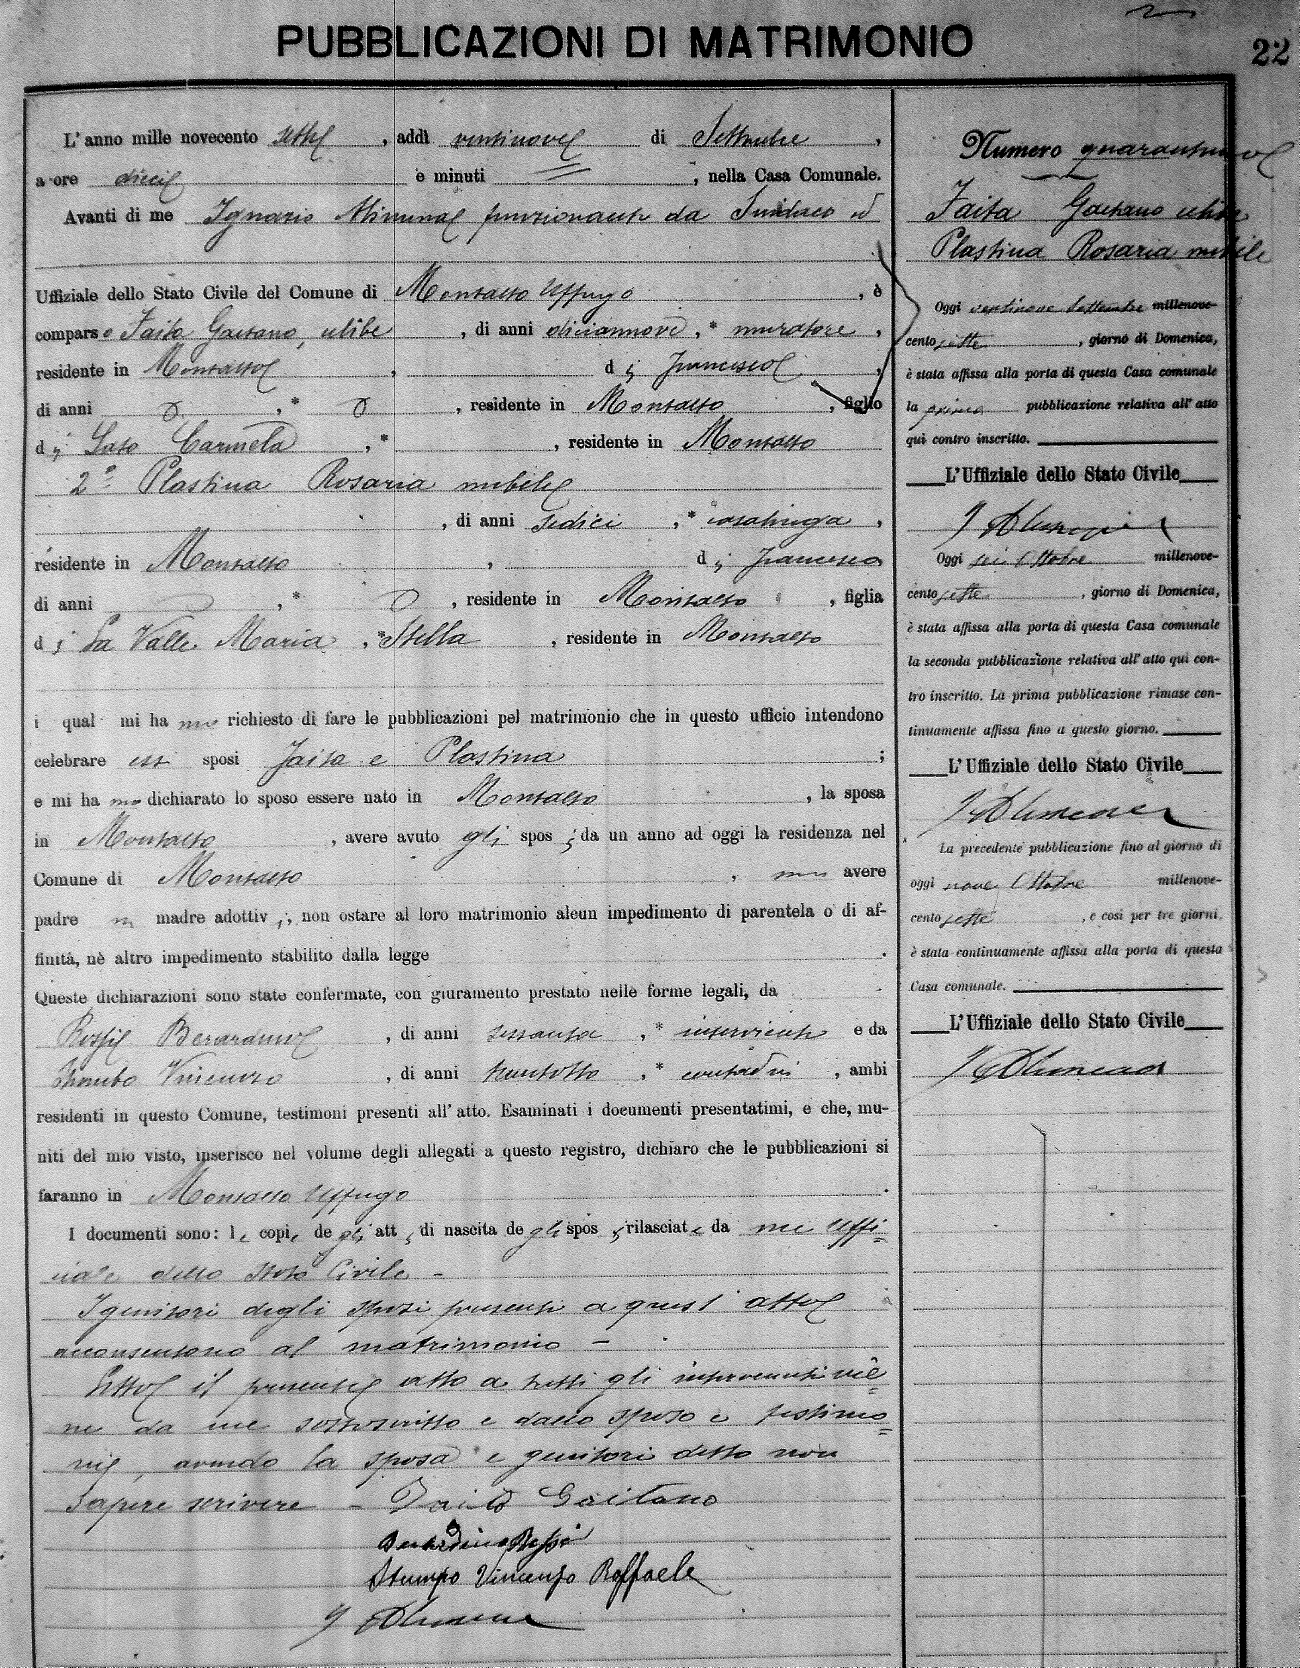 PUBBLICAZIONI DI MATRIMONIO
22
L'anno mille novecento sette, addì ventinove di Settembre,
a ore dieci e minuti, nella Casa Comunale.
Avanti di me Ignazio funzionante da Sindaco ed
Uffiziale dello Stato Civile del Comune di Montalto Uffugo, è
comparso Faita Gaetano, celibe, di anni diciannove, * muratore,
residente in Montalto, di Francesco,
di anni, *, residente in Montalto, figlio
di Carmela, *, residente in Montalto
2° Plastina Rosaria nubile
, di anni sedici, * casalinga,
residente in Montalto, di Francesco
di anni, *, residente in Montalto, figlia
di La Valle Maria, * Stella, residente in Montalto
i qual mi ha nno richiesto di fare le pubblicazioni pel matrimonio che in questo ufficio intendono
celebrare essi sposi Faita e Plastina;
e mi ha nno dichiarato lo sposo essere nato in Montalto, la sposa
in Montalto, avere avuto gli sposi da un anno ad oggi la residenza nel
Comune di Montalto, non avere
padre nè madre adottivi; non ostare al loro matrimonio alcun impedimento di parentela o di af-
finità, nè altro impedimento stabilito dalla legge.
Queste dichiarazioni sono state confermate, con giuramento prestato nelle forme legali, da
Berardino, di anni sessanta, * inserviente e da
Stumpo Vincenzo, di anni trentotto, * contadini, ambi
residenti in questo Comune, testimoni presenti all'atto. Esaminati i documenti presentatimi, e che, mu-
niti del mio visto, inserisco nel volume degli allegati a questo registro, dichiaro che le pubblicazioni si
faranno in Montalto Uffugo.
I documenti sono: le copie degli atti di nascita degli sposi, rilasciate da me Uffi=
ciale dello Stato Civile -
I genitori degli sposi presenti a quest'atto
acconsentono al matrimonio -
Letto il presente atto a tutti gli intervenuti vie=
ne da me sottoscritto e dallo sposo e testimo=
nii, avendo la sposa e genitori detto non
sapere scrivere - Faita Gaitano
Berardino
Stumpo Vincenzo Raffaele
Numero quarantanove
Faita Gaetano celibe
Plastina Rosaria nubile
Oggi ventinove Settembre millenove-
cento sette, giorno di Domenica,
è stata affissa alla porta di questa Casa comunale
la prima pubblicazione relativa all'atto
qui contro inscritto.
L'Uffiziale dello Stato Civile
Oggi sei Ottobre millenove-
cento sette, giorno di Domenica,
è stata affissa alla porta di questa Casa comunale
la seconda pubblicazione relativa all'atto qui con-
tro inscritto. La prima pubblicazione rimase con-
tinuamente affissa fino a questo giorno.
L'Uffiziale dello Stato Civile
La precedente pubblicazione fino al giorno di
oggi nove Ottobre millenove-
cento sette, e così per tre giorni,
è stata continuamente affissa alla porta di questa
Casa comunale.
L'Uffiziale dello Stato Civile